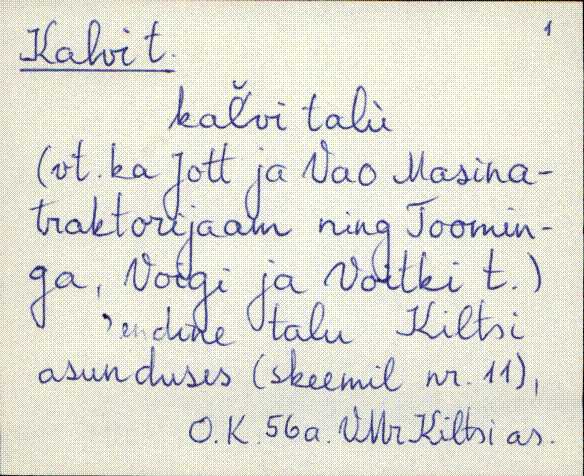 1
Kalvi t.
kaľvi talù
(vt. ka Jott ja Vao Masina-
traktorijaam ning Toomin-
ga, Voigi ja Voitki t.)
'endine talu Kiltsi
asunduses (skeemil nr. 11),
O.K. 56a. VMr Kiltsi as.